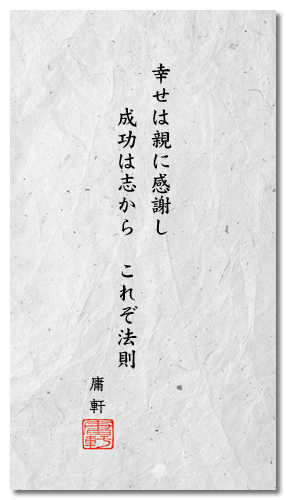 幸せは親に感謝し
成功は志から　これぞ法則
庸軒